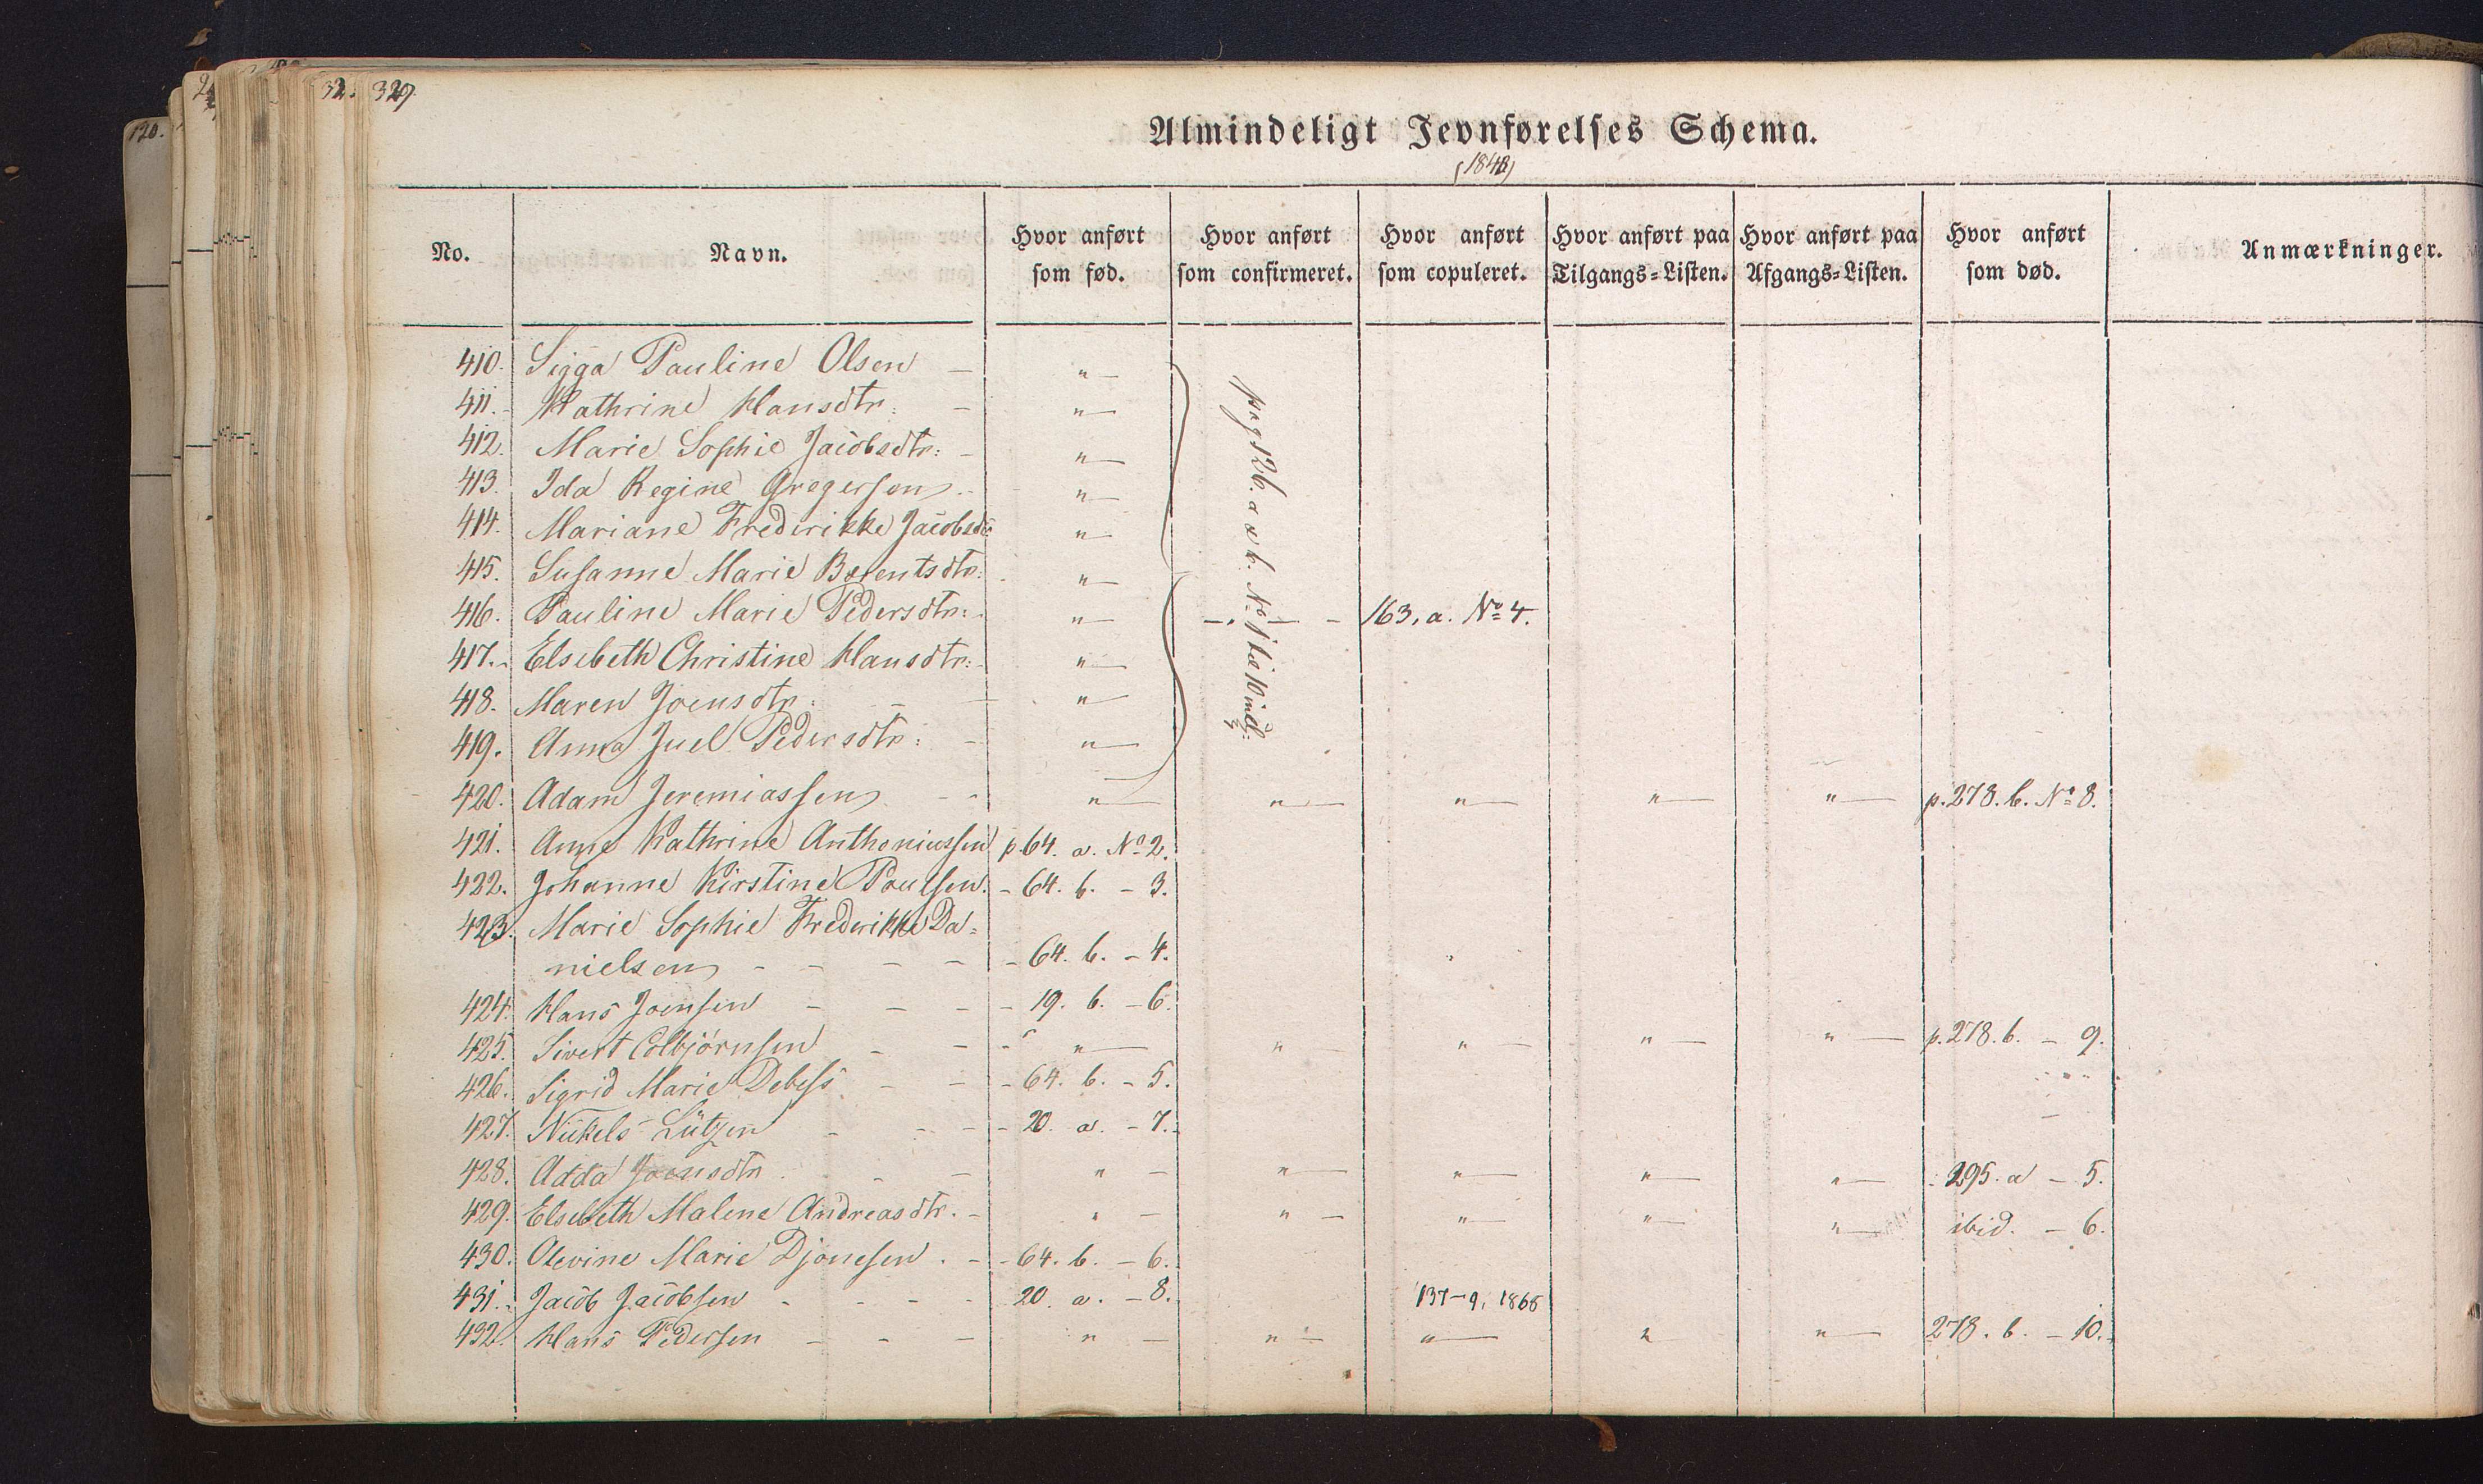 120.
32.
329.
Almindeligt Jevnførelses Schema.
(1848)
No. Navn. Hvor anført som fød. Hvor anført som confirmeret. Hvor anført som copuleret. Hvor anført paa Tilgangs=Listen. Hvor anført paa Afgangs=Listen. Hvor anført som død. Anmærkninger.
410. Sigga Pauline Olsen — "—
411. Kathrine Hansdtr: — "—
412. Marie Sophie Jacobsdtr: — "—
413. Ida Regine Gregersen — "—
414. Mariane Frederikke Jacobsdtr "—
415. Susanne Marie Berentsdtr: "—
416. Pauline Marie Pedersdtr: "— — — 163. a. No 4.
417. Elsebeth Christine Hansdtr: "—
418. Maren Joensdtr: — "—
419. Anna Juel Pedersdtr: — "—
pag 126. a & b. No 1 til 10 incl:
420. Adam Jeremiassen - - "— "— "— "— "— p. 278. b. No 8.
421. Anne Kathrine Anthoniussen p. 64. a. No 2.
422. Johanne Kirstine Poulsen. - 64. b. - 3.
423. Marie Sophie Frederikke Da=
nielsen - - - - - 64. b. - 4.
424. Hans Joensen - - - - 19. b. - 6.
425. Sivert Colbjörnsen - - - "— "— "— "— "— p. 278. b. - 9.
426. Sigrid Marie Debess - - - 64. b. - 5.
427. Nickels Lützen - - - - 20. a. - 7.
428. Adda Joensdtr - - " - "— "— "— "— 295. a - 5.
429. Elsebeth Malene Andreasdtr. - " - " - "— "— "— ibid. - 6.
430. Olevine Marie Djonesen. - - 64. b. - 6.
431. Jacob Jacobsen - - - - 20. a. - 8. 137-9, 1865
432. Hans Pedersen - - - " - " - "— " "— 278. b. - 10.